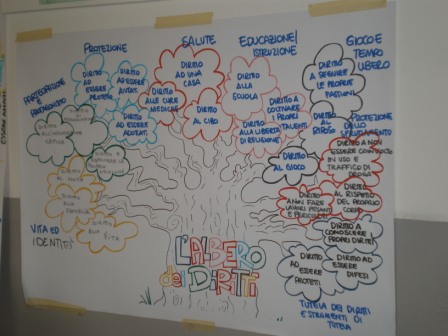 PROTEZIONE
DIRITTO
AD
ESSERE
PROTETTI
DIRITTO
AD ESSERE
AIUTATI
DIRITTO
AD ESSERE
ADOTTATI
SALUTE
DIRITTO
AD UNA
CASA
DIRITTO
ALLE CURE
MEDICHE
DIRITTO
AL CIBO
EDUCAZIONE/
ISTRUZIONE
DIRITTO
ALLA
SCUOLA
DIRITTO A
COLTIVARE
I PROPRI
TALENTI
DIRITTO
ALLA LIBERTÀ
DI RELIGIONE
GIOCO E
TEMPO
LIBERO
DIRITTO
A SEGUIRE
LE PROPRIE
PASSIONI
DIRITTO
AL
RIPOSO
DIRITTO
AL GIOCO
PROTEZIONE
DALLO
SFRUTTAMENTO
DIRITTO A NON
ESSERE COINVOLTI
IN USO E
TRAFFICO DI
DROGA
DIRITTO
A NON FARE
LAVORI PESANTI
E PERICOLOSI
DIRITTO
AL RISPETTO
DEL PROPRIO
CORPO
DIRITTO A
CONOSCERE
I PROPRI DIRITTI
DIRITTO
AD ESSERE
PROTETTI
DIRITTO
AD ESSERE
DIFESI
TUTELA DEI DIRITTI
E STRUMENTI DI
TUTELA
PARTECIPAZIONE
E
DIRITTO
DIRITTO
AL NOME
DIRITTO
ALLA
FAMIGLIA
DIRITTO
ALLA
VITA
VITA ED
IDENTITÀ
L'ALBERO
dei DIRITTI